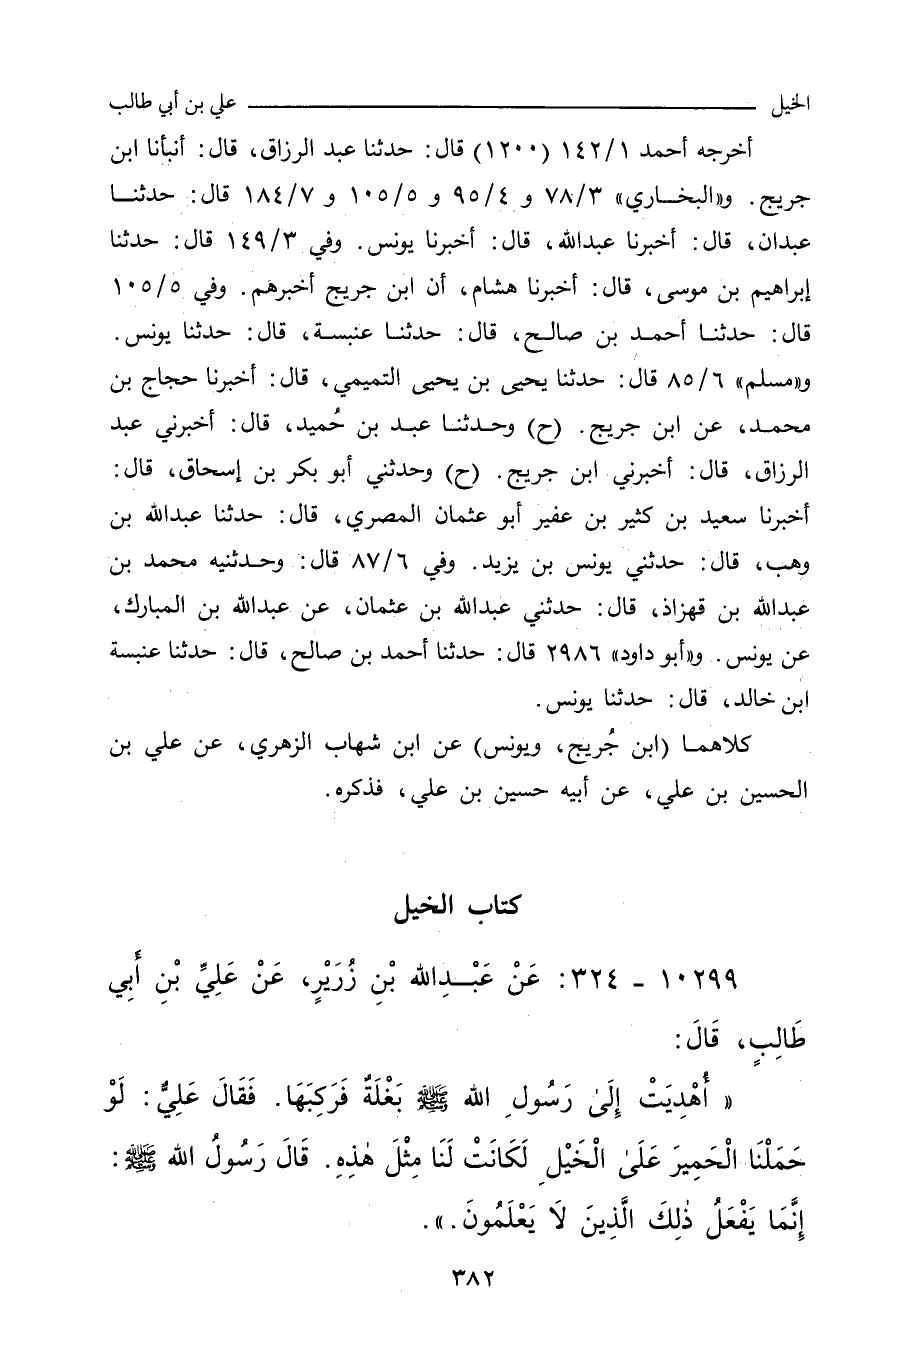 الخيل ــــــــــ علي بن أبي طالب
أخرجه أحمد ١٤٢/١ (١٢٠٠) قال: حدثنا عبد الرزاق، قال: أنبأنا ابن
جريج. و«البخاري» ٧٨/٣ و ٩٥/٤ و ١٠٥/٥ و ١٨٤/٧ قال: حدثنا
عبدان، قال: أخبرنا عبدالله، قال: أخبرنا يونس. وفي ١٤٩/٣ قال: حدثنا
إبراهيم بن موسى، قال: أخبرنا هشام، أن ابن جريج أخبرهم. وفي ١٠٥/٥
قال: حدثنا أحمد بن صالح، قال: حدثنا عنبسة، قال: حدثنا يونس.
و«مسلم» ٨٥/٦ قال: حدثنا يحيى بن يحيى التميمي، قال: أخبرنا حجاج بن
محمد، عن ابن جريج. (ح) وحدثنا عبد بن حُميد، قال: أخبرني عبد
الرزاق، قال: أخبرني ابن جريج. (ح) وحدثني أبو بكر بن إسحاق، قال:
أخبرنا سعيد بن كثير بن عفير أبو عثمان المصري، قال: حدثنا عبدالله بن
وهب، قال: حدثني يونس بن يزيد. وفي ٨٧/٦ قال: وحدثنيه محمد بن
عبدالله بن قهزاذ، قال: حدثني عبدالله بن عثمان، عن عبدالله بن المبارك،
عن يونس. و«أبو داود» ٢٩٨٦ قال: حدثنا أحمد بن صالح، قال: حدثنا عنبسة
ابن خالد، قال: حدثنا يونس.
كلاهما (ابن جُريج، ويونس) عن ابن شهاب الزهري، عن علي بن
الحسين بن علي، عن أبيه حسين بن علي، فذكره.
كتاب الخيل
١٠٢٩٩ - ٣٢٤: عَنْ عَبْدِالله بْنِ زُرَيْرٍ، عَنْ عَلِيِّ بْنِ أَبِي
طَالِبٍ، قَالَ:
« أُهْدِيَتْ إِلَىٰ رَسُولِ الله ﷺ بَغْلَةٌ فَرَكِبَهَا. فَقَالَ عَلِيٌّ: لَوْ
حَمَلْنَا الْحَمِيرَ عَلَىٰ الْخَيْلِ لَكَانَتْ لَنَا مِثْلَ هٰذِهِ. قَالَ رَسُولُ الله ﷺ:
إِنَّمَا يَفْعَلُ ذٰلِكَ الَّذِينَ لَا يَعْلَمُونَ.».
٣٨٢